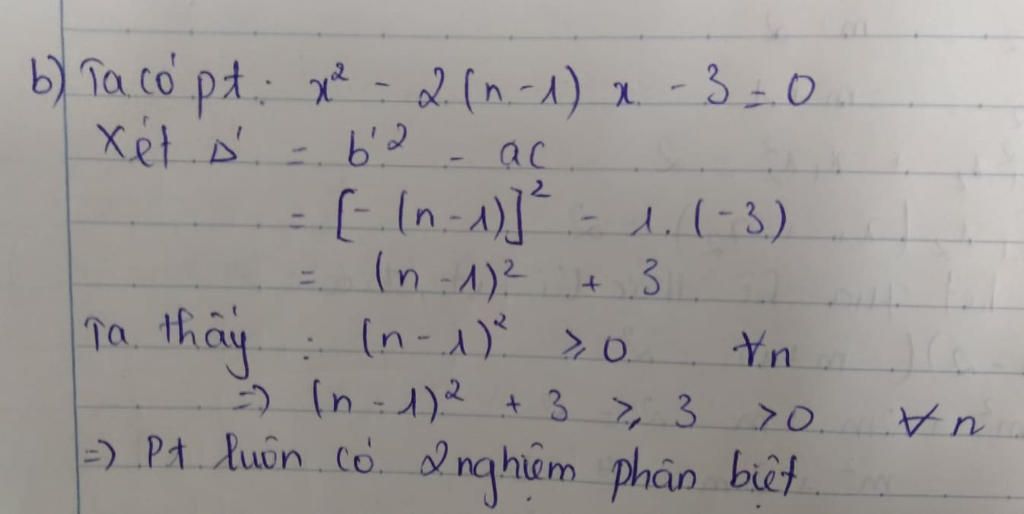 b) Ta có pt: x² - 2(n-1) x - 3 = 0
Xét Δ' = b'² - ac
= [-(n-1)]² - 1.(-3)
= (n-1)² + 3
Ta thấy : (n-1)² ≥ 0 ∀n
=> (n-1)² + 3 ≥ 3 > 0 ∀n
=> Pt luôn có 2 nghiệm phân biệt